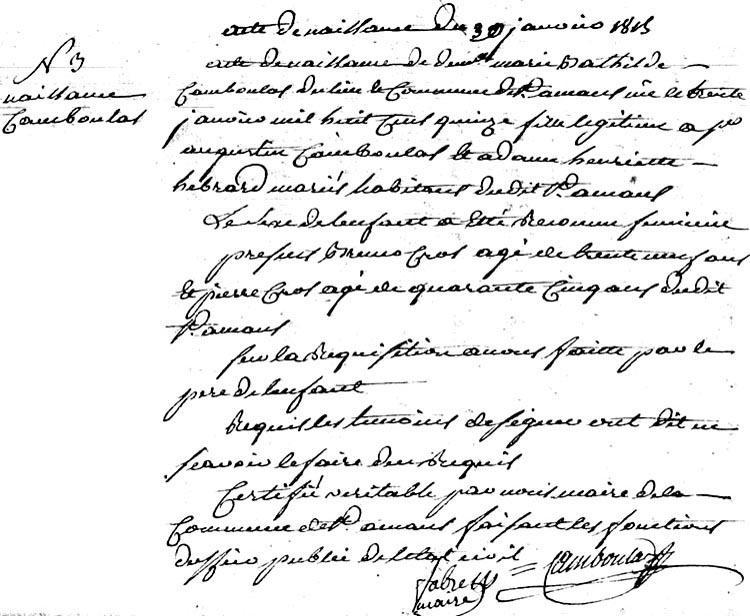 acte de naissance du 30 janvier 1815
N 3
naissance
Camboulas
acte de naissance de dem.lle marie Mathilde
Camboulas du lieu et Commune de St. amans née le trente
janvier mil huit Cens quinze fille legitime a
augustin Camboulas et a dame henriette
hebrard mariés habitans dudit St. amans
Le sexe de lenfant a Etté Reconnu feminin
presens Bruno Cros agé de trente neuf ans
Et pierre Cros agé de quarante Cinq ans dudit
St. amans
sur la Requisition a nous faitte par le
pere de lenfant
Requis les temoins de signer ont dit ne
scavoir le faire de ce Requis
Certiffié veritable par nous maire de la
Commune de St. amans faisant les fonctions
dofficier public de letat civil
Camboulas
fabre
maire